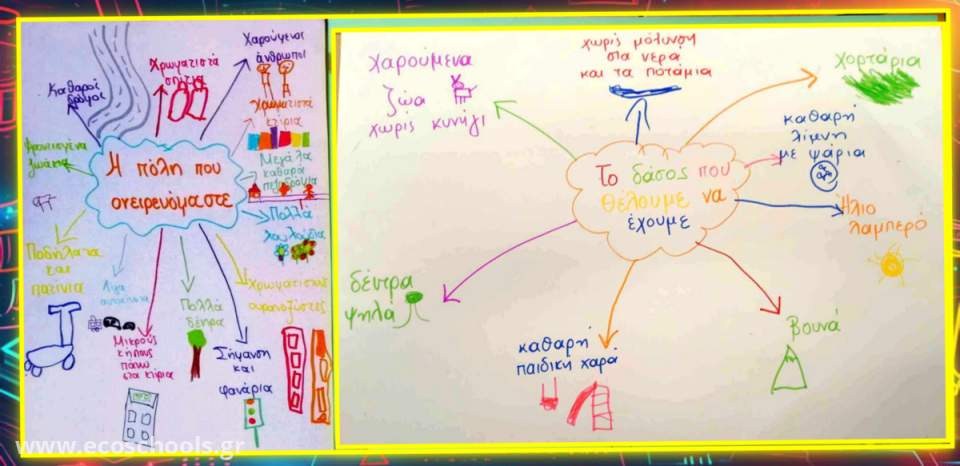 Καθαροί
δρόμοι
Χρωματιστά
σπίτια
Χαρούμενοι
άνθρωποι
Χρωματιστά
κτίρια
Μεγάλα
καθαρά
πεζοδρόμια
Πολλά
λουλούδια
Χρωματιστούς
ουρανοξύστες
Σήμανση
και
φανάρια
Πολλά
δέντρα
Μικρούς
κήπους
πάνω
στα κτίρια
Λίγα
αυτοκίνητα
Ποδήλατα
και
πατίνια
φροντισμένα
ζωάκια
Η πόλη που
ονειρευόμαστε
Χαρούμενα
ζώα
χωρίς κυνήγι
χωρίς μόλυνση
στα νερά
και τα ποτάμια
χορτάρια
καθαρή
λίμνη
με ψάρια
Ήλιο
λαμπερό
Βουνά
καθαρή
παιδική χαρά
δέντρα
ψηλά
Το δάσος που
θέλουμε να
έχουμε
www.ecoschools.gr